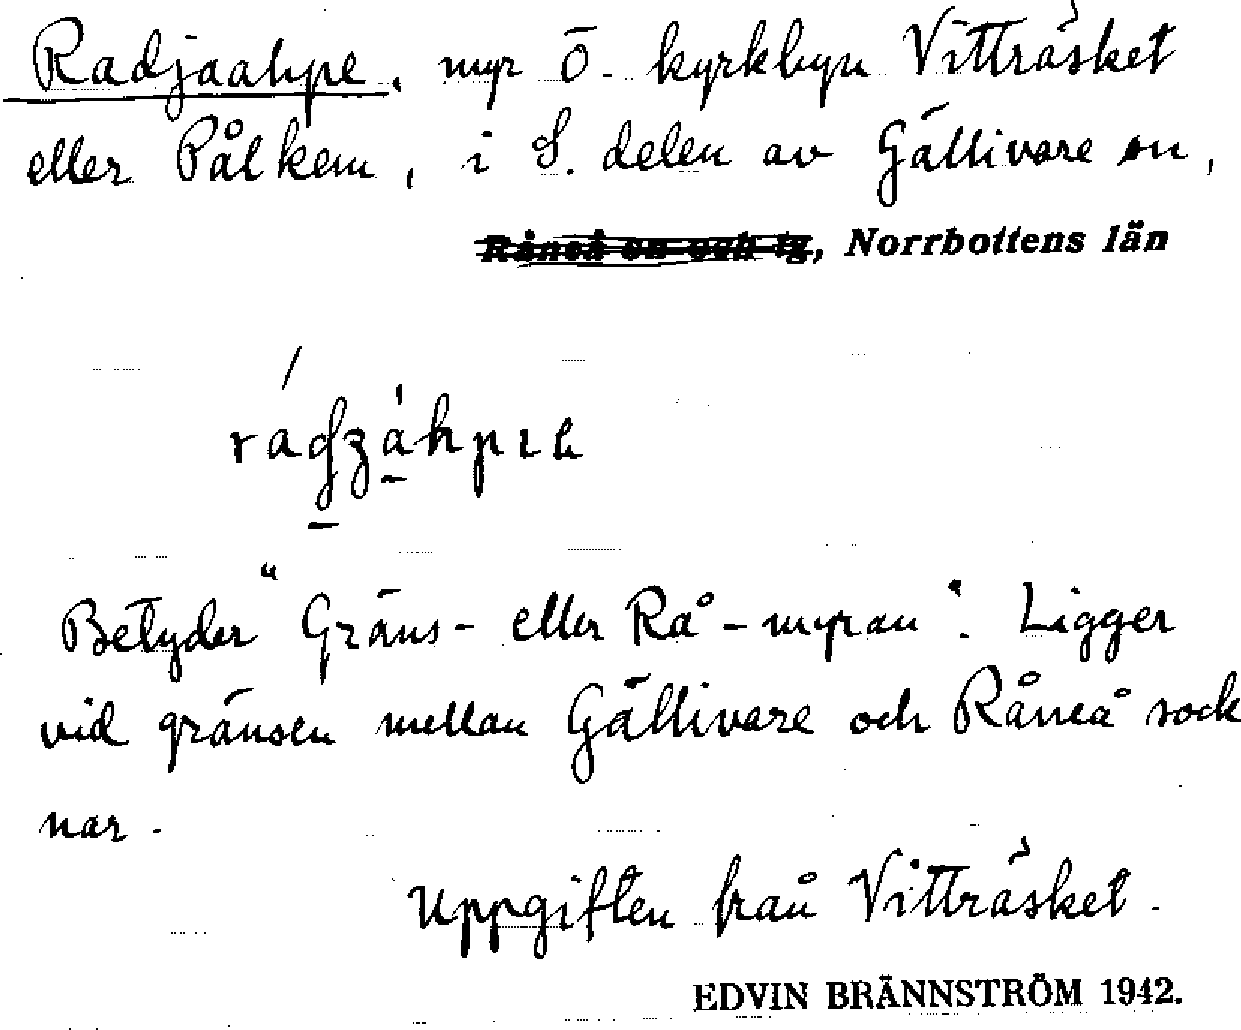 Radjaahpe, myr Ö. kyrkbyn Vitträsket
eller Pålkem, i S. delen av Gällivare sn,
Råneå sn och tg, Norrbottens län
Betyder "Gräns- eller Rå-myran". Ligger
vid gränsen mellan Gällivare och Råneå sock
nar.
Uppgiften från Vitträsket.
EDVIN BRÄNNSTRÖM 1942.